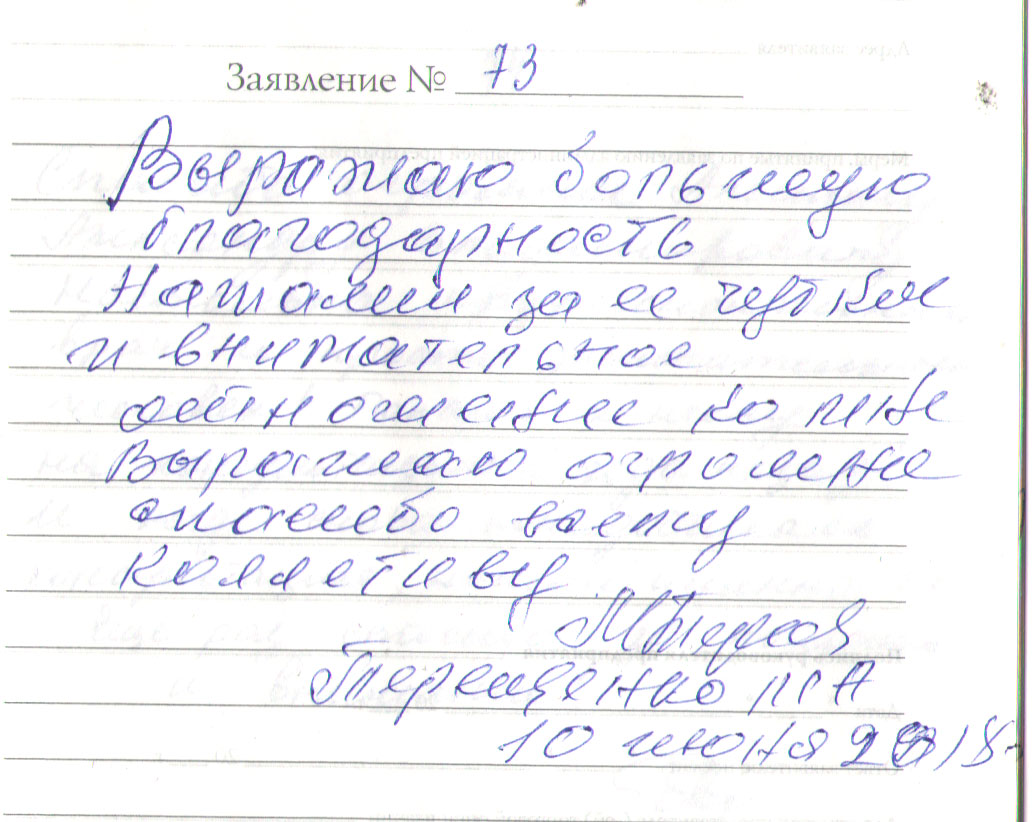 Заявление № 73
Выражаю большую
благодарность
Наталии за ее чуткое
и внимательное
отношение ко мне
Выражаю огромное
спасибо всему
коллетиву
Терещенко
10 июня 2018